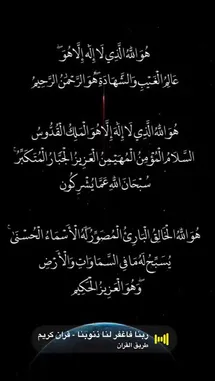 هُوَ اللَّهُ الَّذِي لَا إِلَٰهَ إِلَّا هُوَ ۖ
عَالِمُ الْغَيْبِ وَالشَّهَادَةِ ۖ هُوَ الرَّحْمَٰنُ الرَّحِيمُ
هُوَ اللَّهُ الَّذِي لَا إِلَٰهَ إِلَّا هُوَ الْمَلِكُ الْقُدُّوسُ
السَّلَامُ الْمُؤْمِنُ الْمُهَيْمِنُ الْعَزِيزُ الْجَبَّارُ الْمُتَكَبِّرُ ۚ
سُبْحَانَ اللَّهِ عَمَّا يُشْرِكُونَ
هُوَ اللَّهُ الْخَالِقُ الْبَارِئُ الْمُصَوِّرُ ۖ لَهُ الْأَسْمَاءُ الْحُسْنَىٰ ۚ
يُسَبِّحُ لَهُ مَا فِي السَّمَاوَاتِ وَالْأَرْضِ
ۖ وَهُوَ الْعَزِيزُ الْحَكِيمُ
ربنا فاغفر لنا ذنوبنا - قرآن كريم
طريق القران